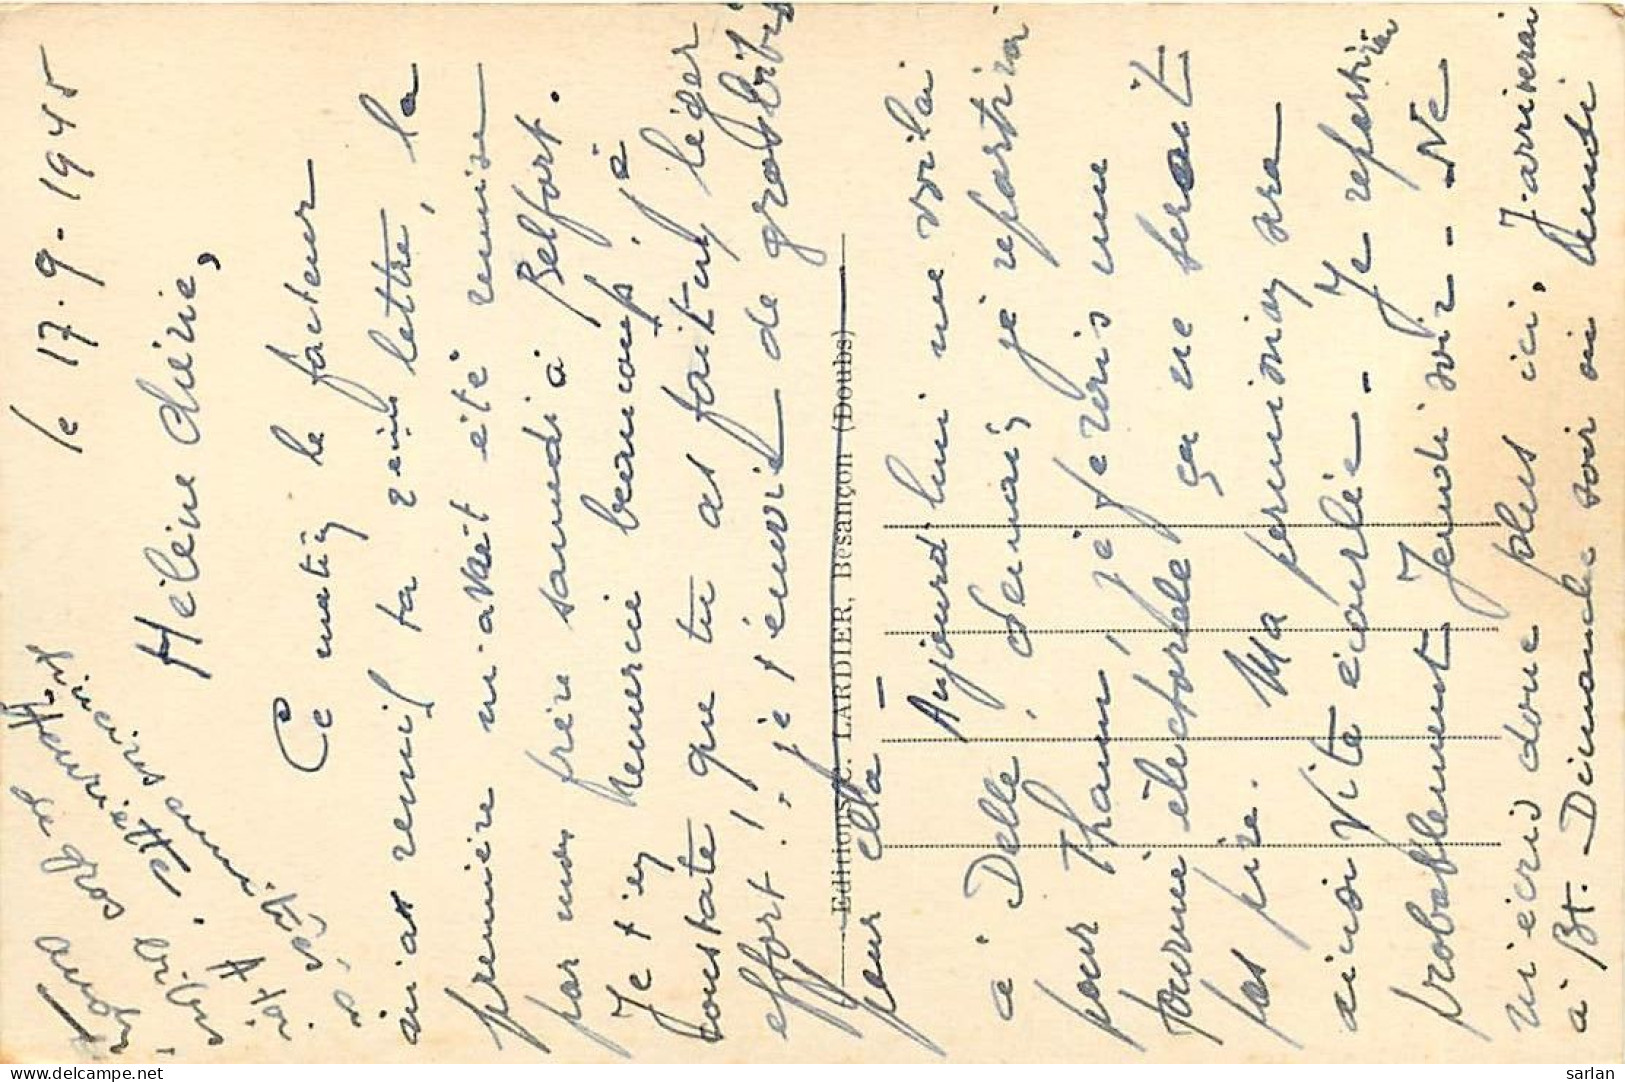 le 17.9.1945
Hélène chérie,
Ce matin le facteur
m'a remis ta 2eme lettre, la
première m'avait été remise
par mon frère samedi à Belfort.
Je t'en remercie beaucoup, je
constate que tu as fait un léger
effort !.. je t'envoie de gros bibis
pour cela —
Aujourd'hui me voilà
à Delle, demain je repartirai
pour Thann, je ferais une
tournée électorale ça ne serait
pas pire. Ma permission sera
ainsi vite écoulée — Je repartirai
probablement Jeudi soir — Ne
m'écris donc plus ici, J'arriverai
à Bt. Dimanche soir ou Lundi
de gros bibis
Henriette
sincères amitiés
Editions C. LARDIER, Besançon (Doubs)
sarlan